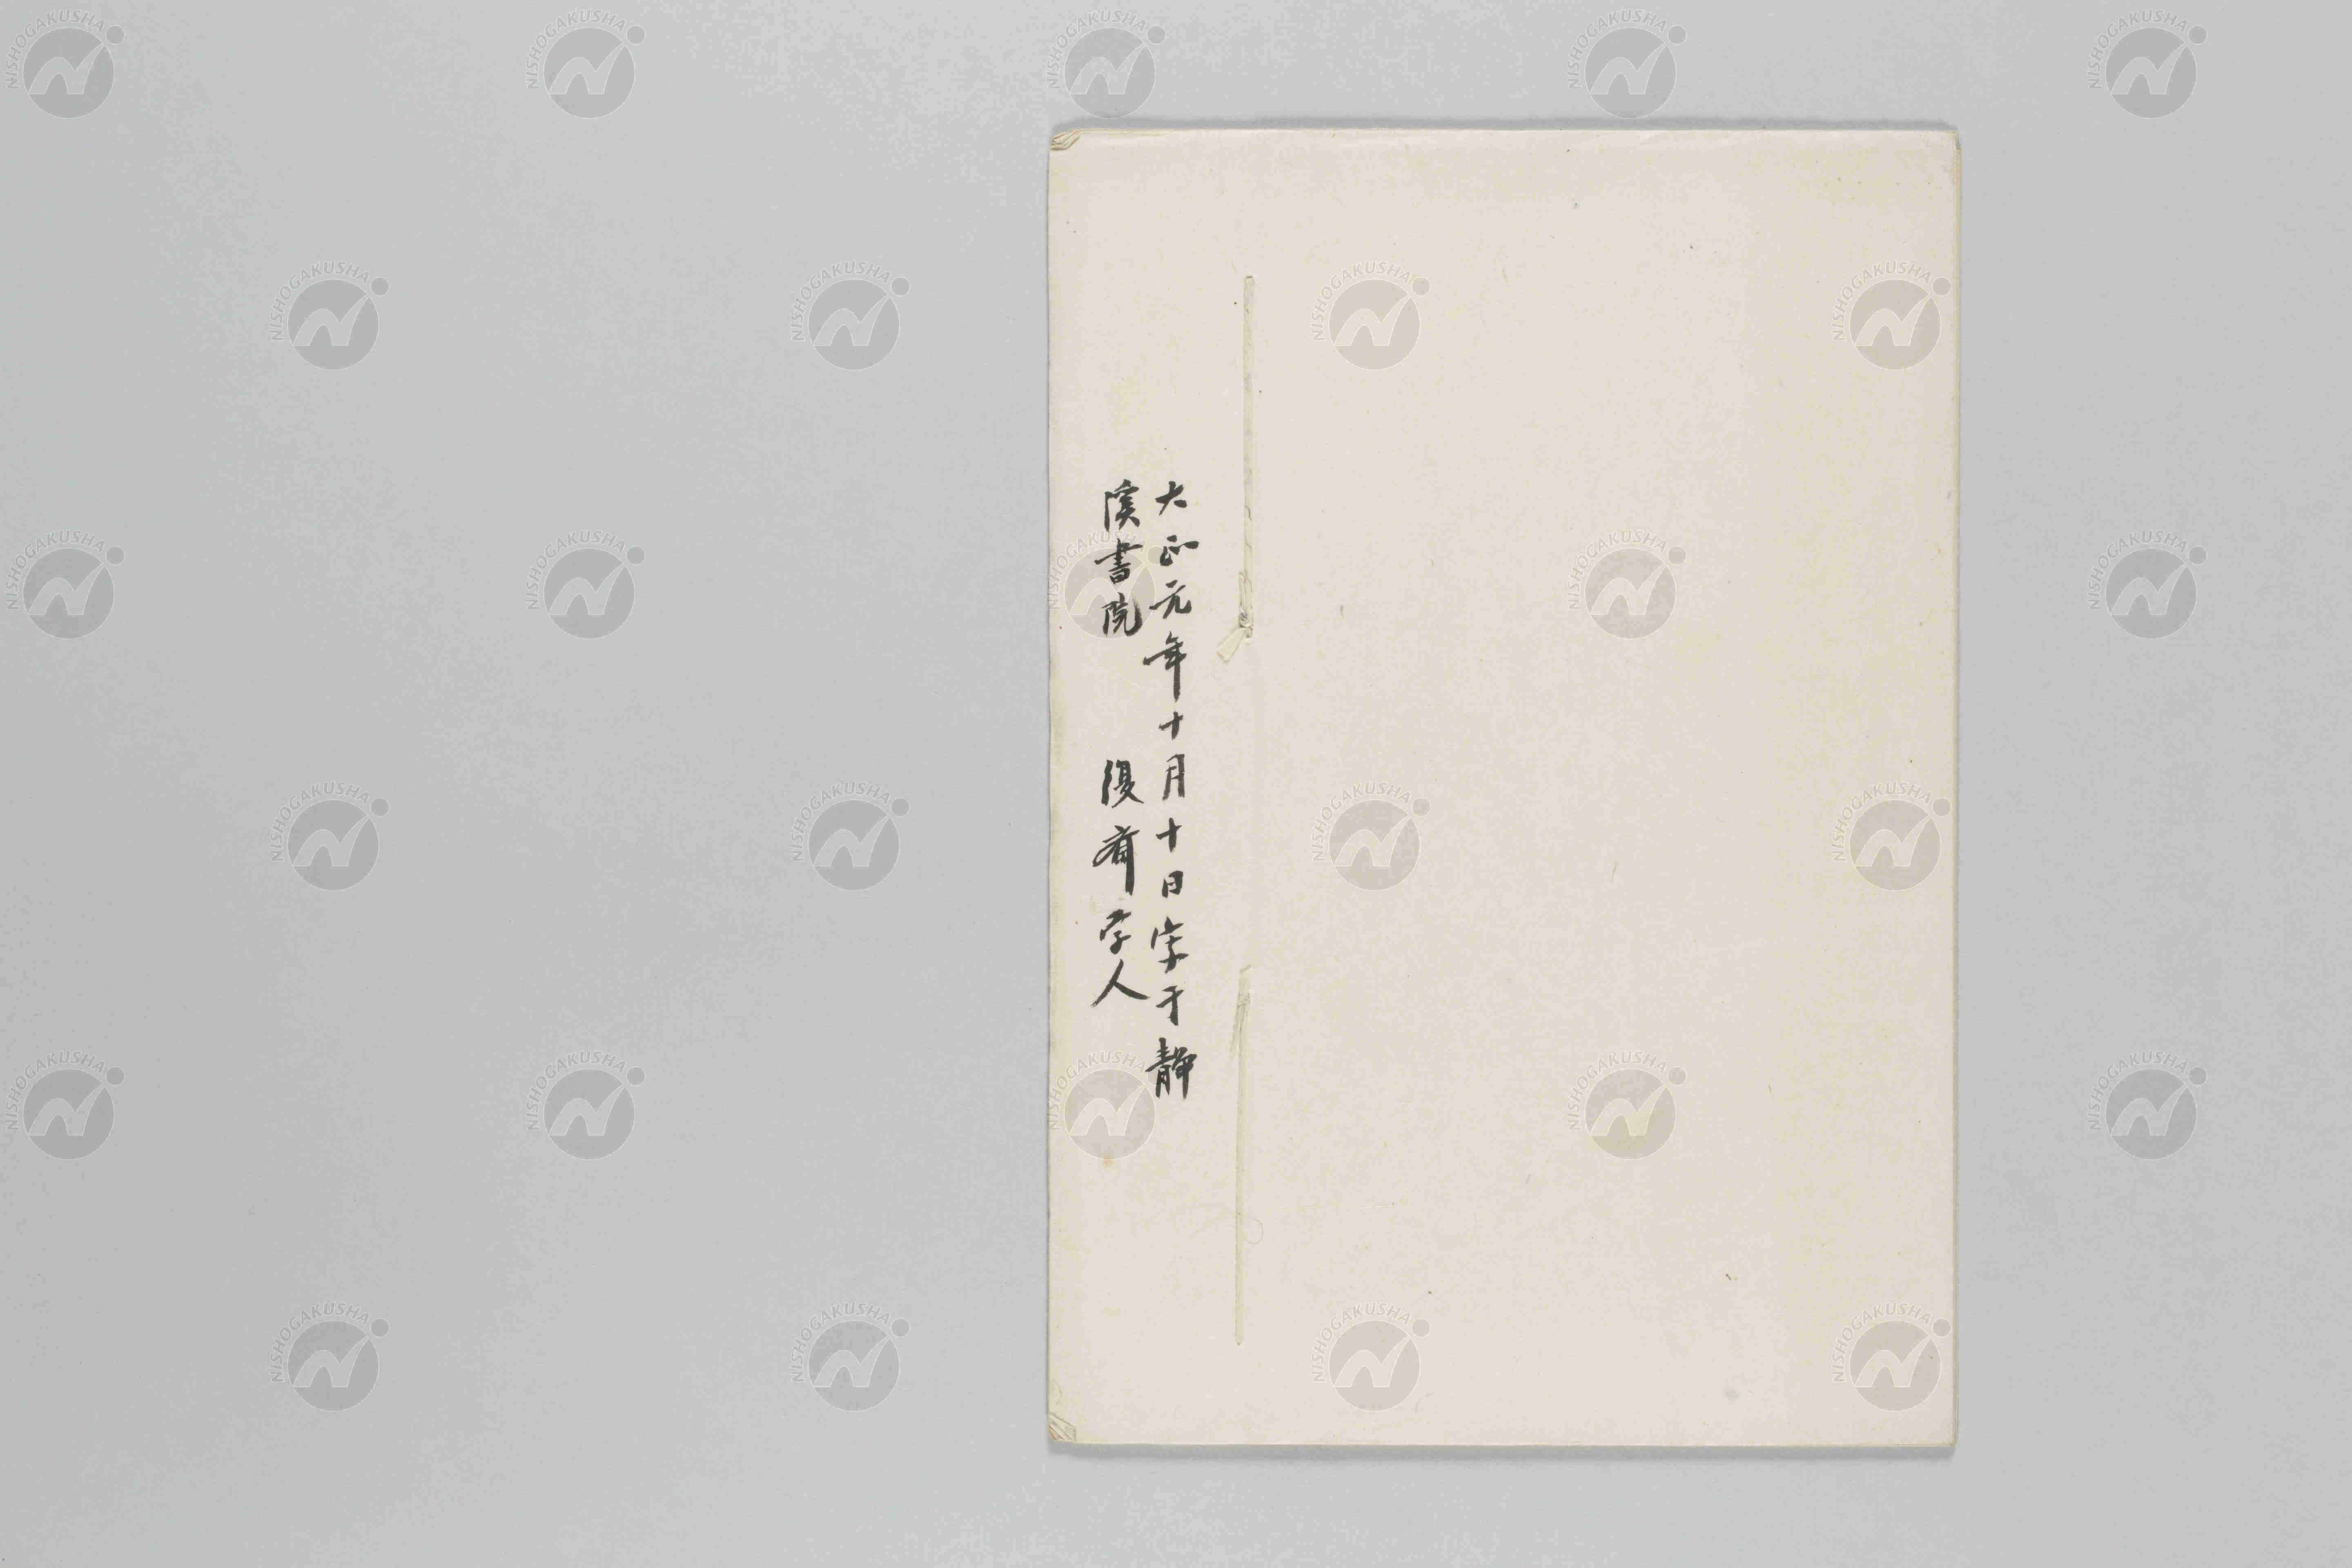 大正元年十月十日于静
溪書院　復斎学人
NISHOGAKUSHA